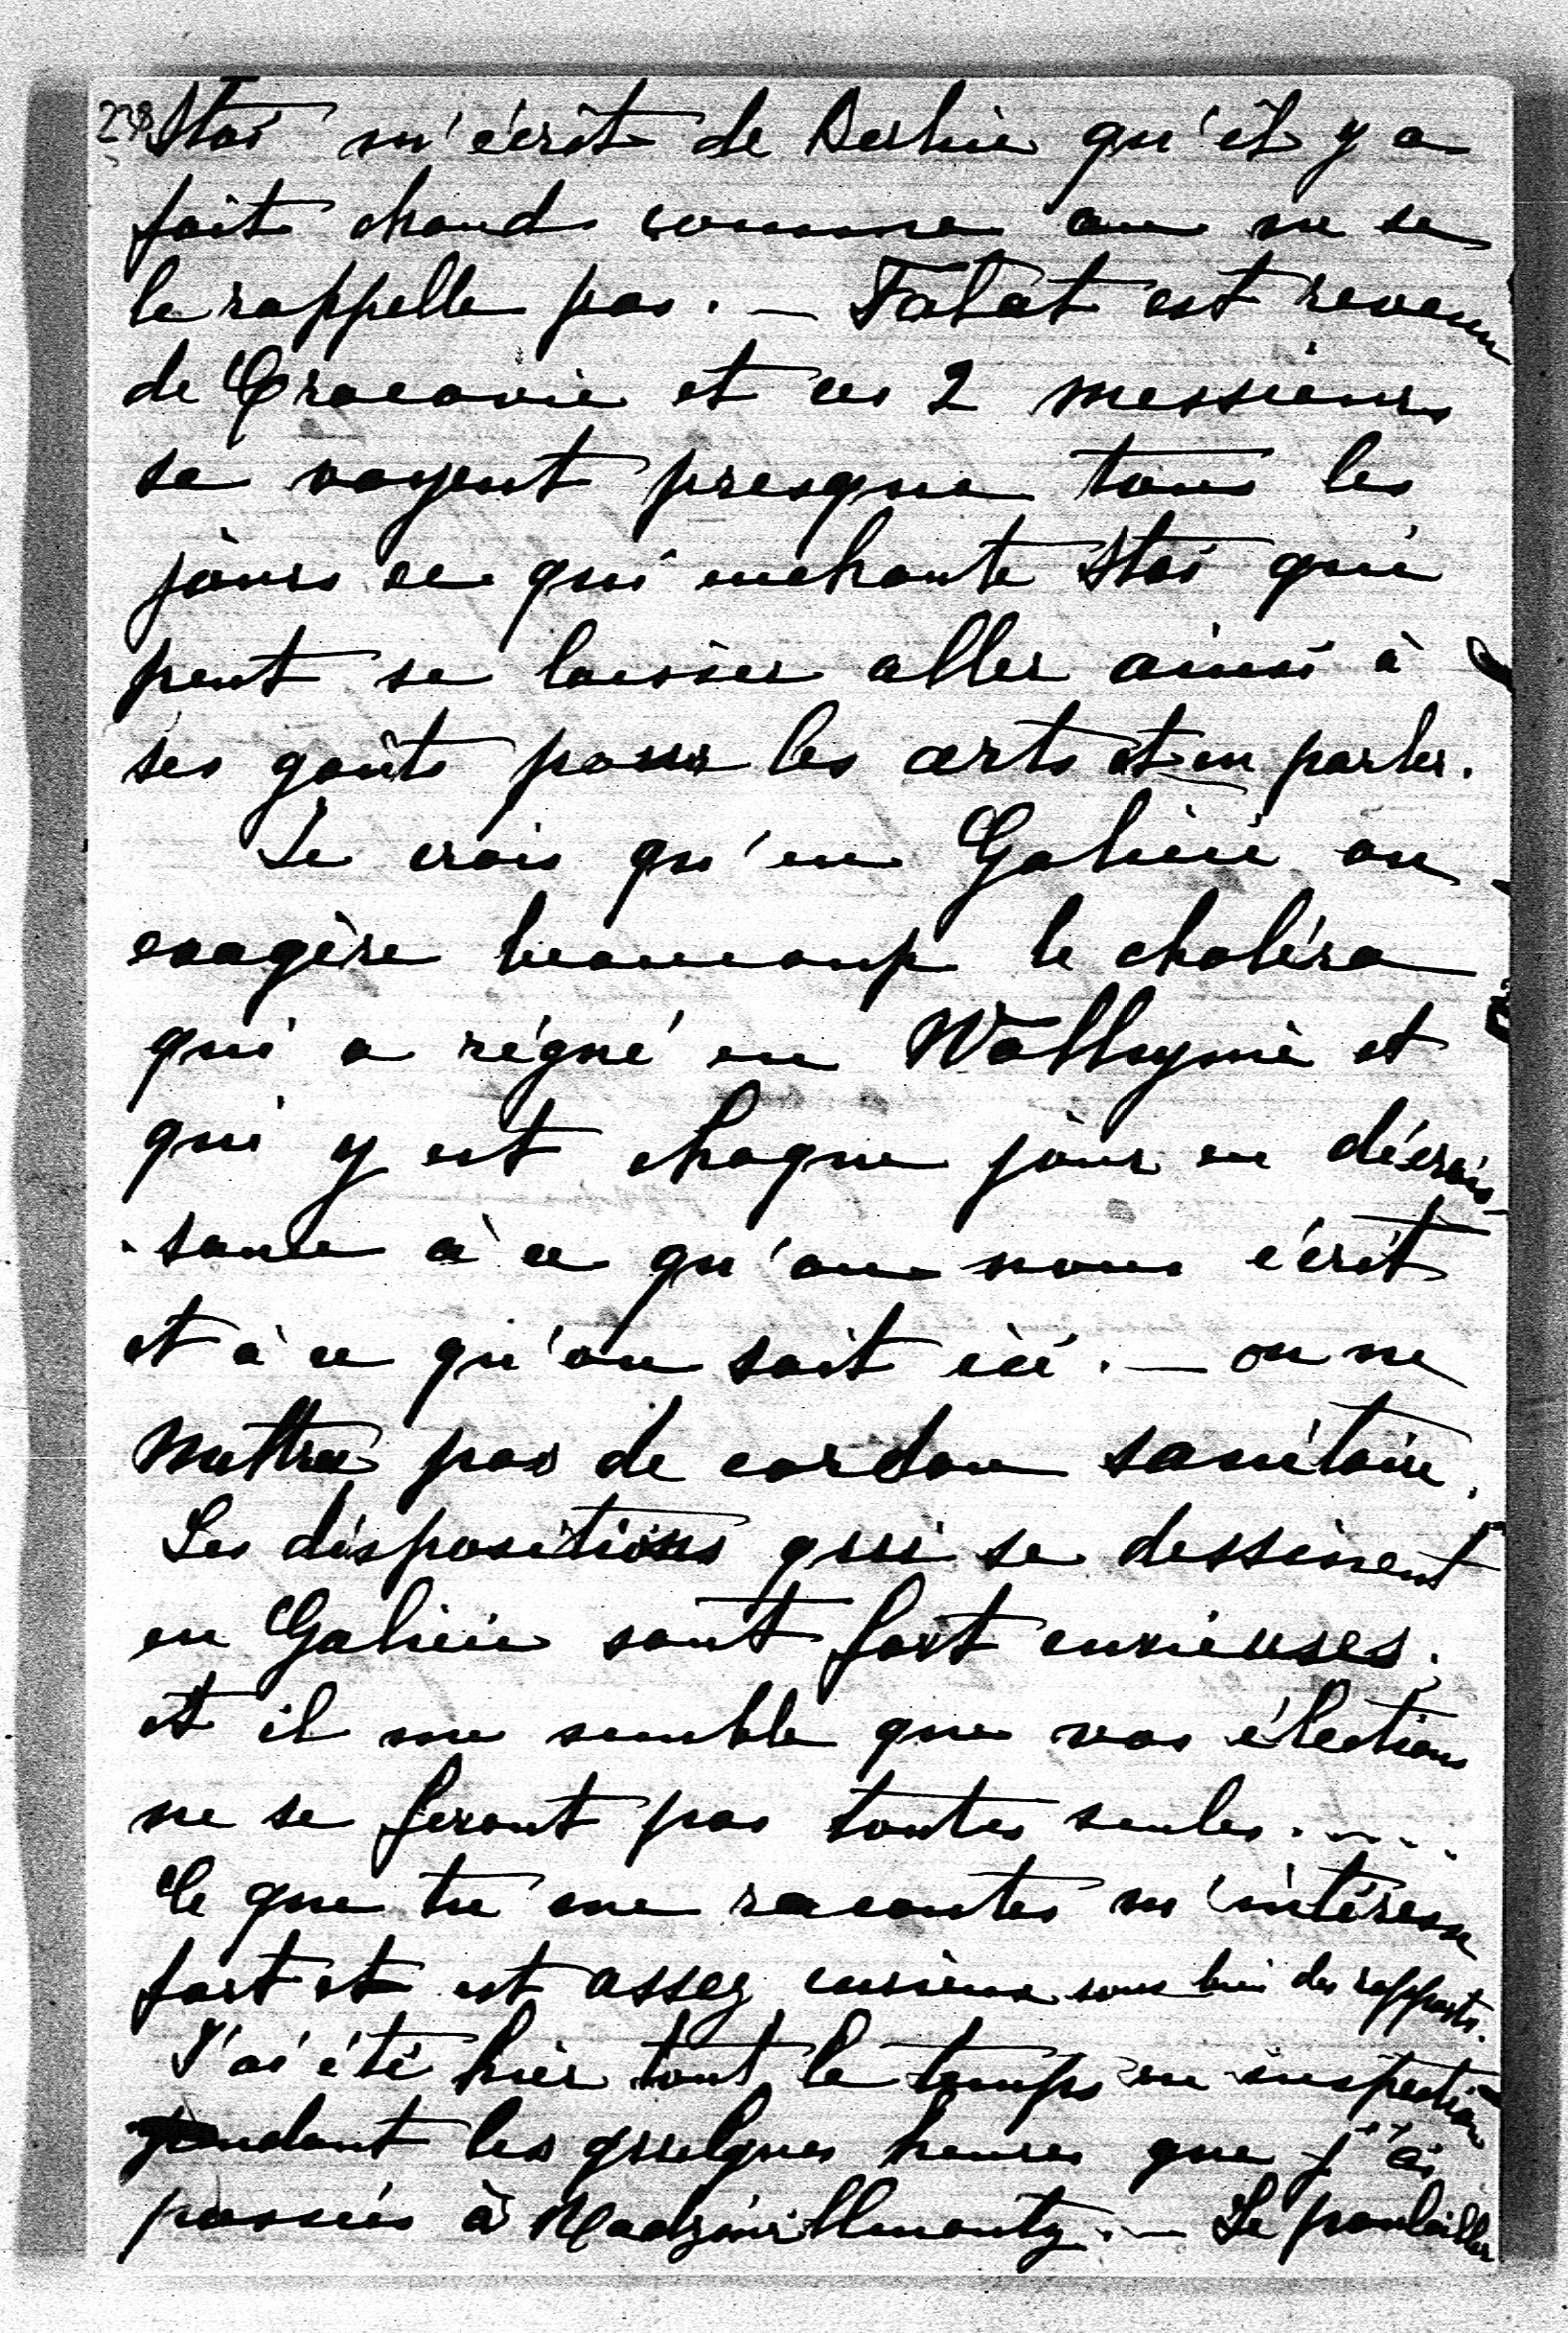 238 Stas m'écrit de Berlin qu'il y a
fait chaud comme on ne se
le rappelle pas. — Falat est revenu
de Cracovie et ces 2 messieurs
se voyent presque tous les
jours ce qui enchante Stas qui
peut se laisser aller ainsi à
ses goûts pour les arts et en parler.
Je crois qu'en Galicie on
exagère beaucoup le choléra
qui a régné en Wolhynie et
qui y est chaque jour en décrois-
-sance à ce qu'on nous écrit
et à ce qu'on sait ici. — on ne
mettra pas de cordon sanitaire.
Les dispositions qui se dessinent
en Galicie sont fort curieuses.
et il me semble que vos élections
ne se feront pas toutes seules.....
Ce que tu me racontes m'intéresse
fort et est assez curieux sous bien des rapports.
J'ai été hier tout le temps en inspection
pendant les quelques heures que j'ai
passées à Radziwillmonty. — Le poulailler